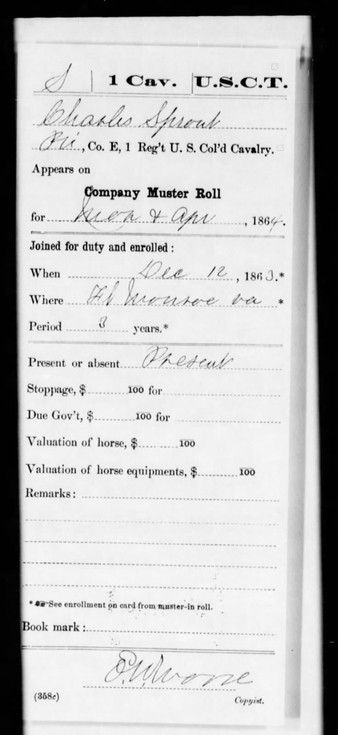 S | 1 Cav. | U.S.C.T.
Charles Sprout
Pri, Co. E, 1 Reg't U. S. Col'd Cavalry.
Appears on
Company Muster Roll
for Mch & Apr, 1864.
Joined for duty and enrolled:
When Dec 12, 1863.*
Where Ft Monroe Va *
Period 3 years.*
Present or absent Present
Stoppage, $ 100 for
Due Gov't, $ 100 for
Valuation of horse, $ 100
Valuation of horse equipments, $ 100
Remarks:
* See enrollment on card from muster-in roll.
Book mark:
(358c) Copyist.